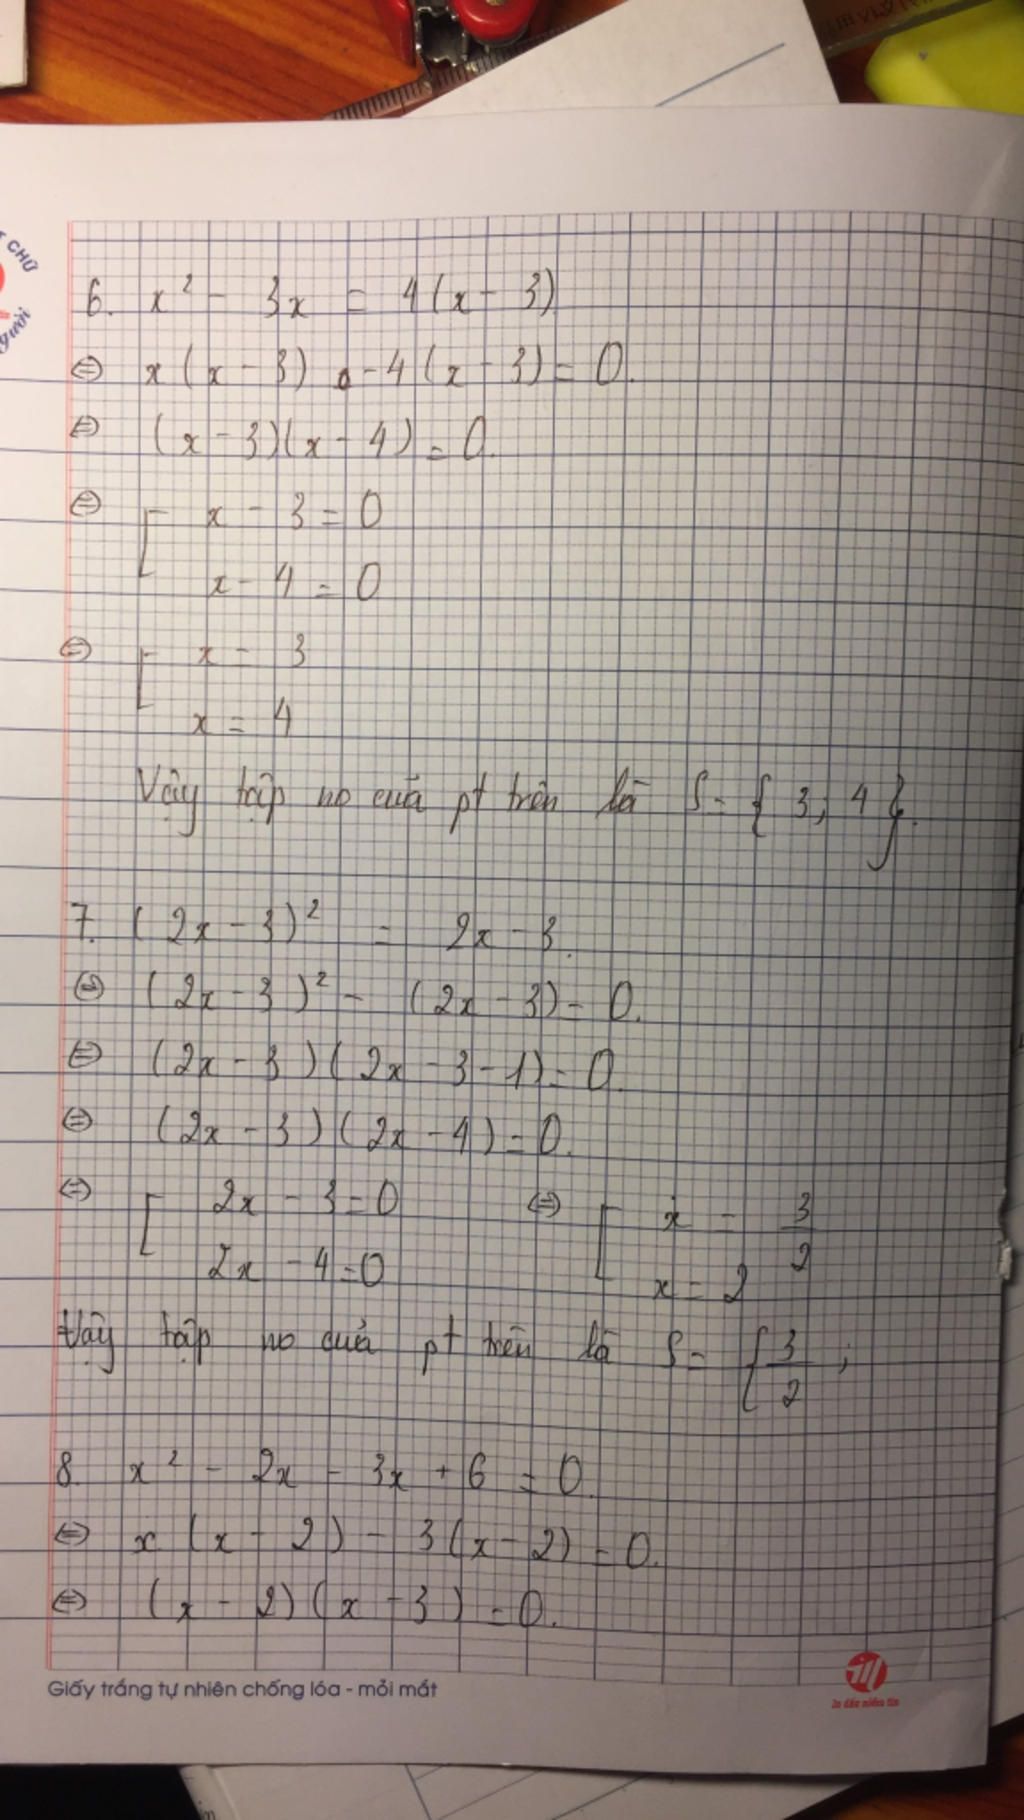 T CHỮ
gười
6. x² - 3x = 4(x - 3)
⇔ x(x - 3) - 4(x - 3) = 0.
⇔ (x - 3)(x - 4) = 0.
⇔ [ x - 3 = 0
x - 4 = 0
⇔ [ x = 3
x = 4
Vậy tập no của pt trên là S = { 3; 4 }.
7. (2x - 3)² = 2x - 3.
⇔ (2x - 3)² - (2x - 3) = 0.
⇔ (2x - 3)(2x - 3 - 1) = 0.
⇔ (2x - 3)(2x - 4) = 0.
⇔ [ 2x - 3 = 0 ⇔ [ x = 3/2
2x - 4 = 0 x = 2
Vậy tập no của pt trên là S = { 3/2 ;
8. x² - 2x - 3x + 6 = 0.
⇔ x(x - 2) - 3(x - 2) = 0.
⇔ (x - 2)(x - 3) = 0.
Giấy trắng tự nhiên chống lóa - mỏi mắt
In dấu niềm tin